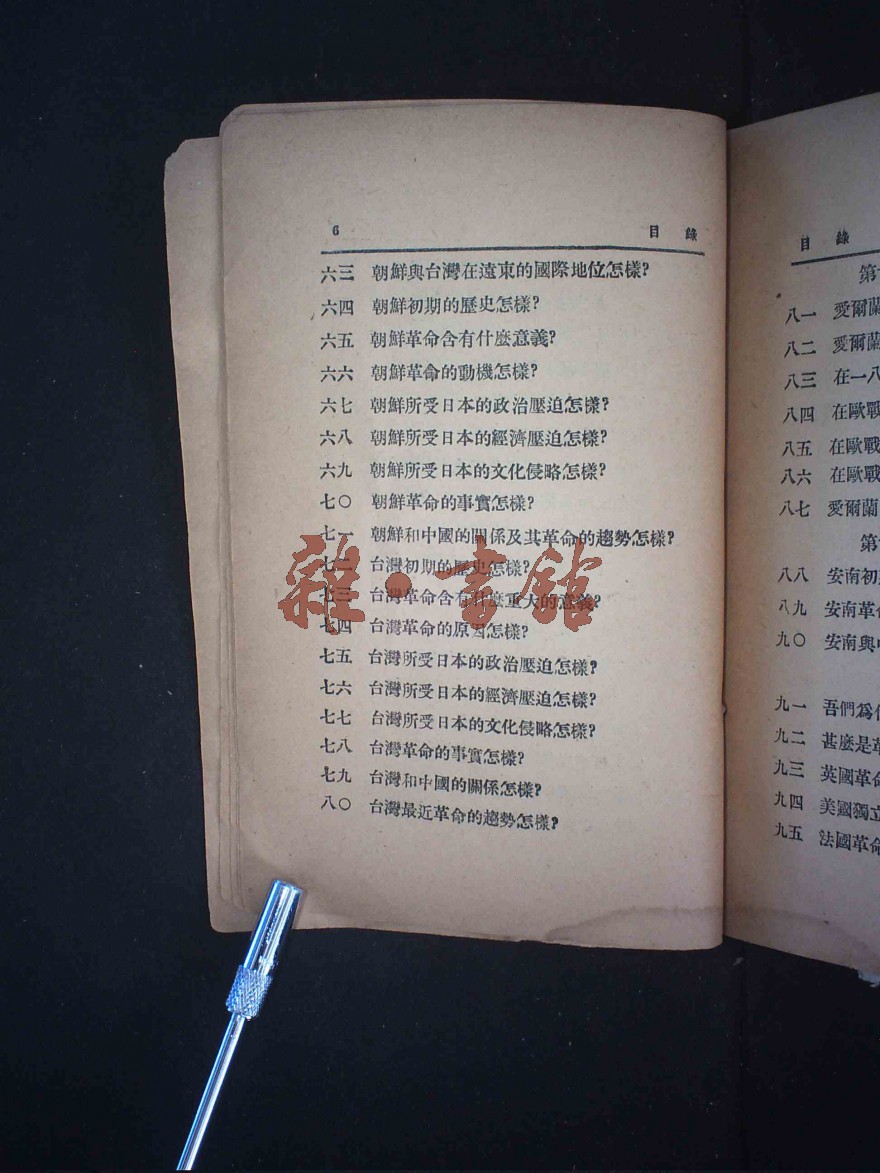 6 目錄
六三 朝鮮與台灣在遠東的國際地位怎樣?
六四 朝鮮初期的歷史怎樣?
六五 朝鮮革命含有什麼意義?
六六 朝鮮革命的動機怎樣?
六七 朝鮮所受日本的政治壓迫怎樣?
六八 朝鮮所受日本的經濟壓迫怎樣?
六九 朝鮮所受日本的文化侵略怎樣?
七〇 朝鮮革命的事實怎樣?
七一 朝鮮和中國的關係及其革命的趨勢怎樣?
七二 台灣初期的歷史怎樣?
七三 台灣革命含有什麼重大的意義?
七四 台灣革命的原因怎樣?
七五 台灣所受日本的政治壓迫怎樣?
七六 台灣所受日本的經濟壓迫怎樣?
七七 台灣所受日本的文化侵略怎樣?
七八 台灣革命的事實怎樣?
七九 台灣和中國的關係怎樣?
八〇 台灣最近革命的趨勢怎樣?
雜·書館
目錄
第
八一 愛爾蘭
八二 愛爾蘭
八三 在一八
八四 在歐戰
八五 在歐戰
八六 在歐戰
八七 愛爾蘭
第
八八 安南初
八九 安南革
九〇 安南與
九一 吾們爲
九二 甚麼是
九三 英國革命
九四 美國獨立
九五 法國革命